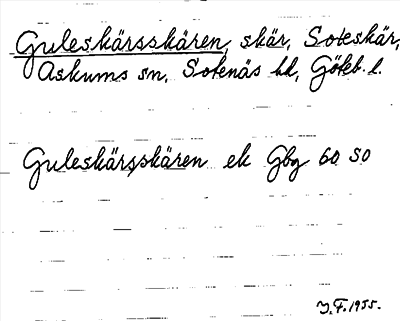 Guleskärsskären, skär, Soteskär,
Askums sn, Sotenäs hd, Göteb. l.
Guleskärsskären ek Gbg 60 SO
J.F. 1955.